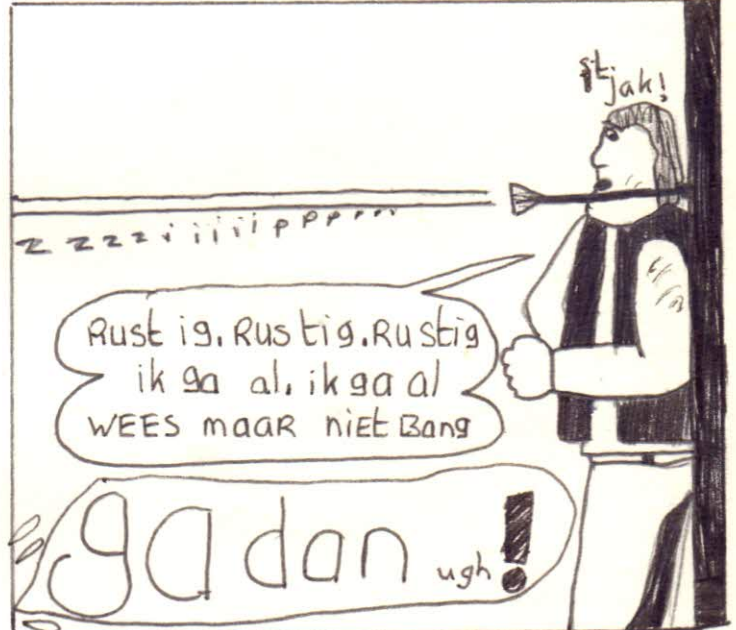 stjak!
zzzziiiiipppp...
Rustig. Rustig. Rustig
ik ga al. ik ga al
WEES maaR niet Bang
ga dan ugh!